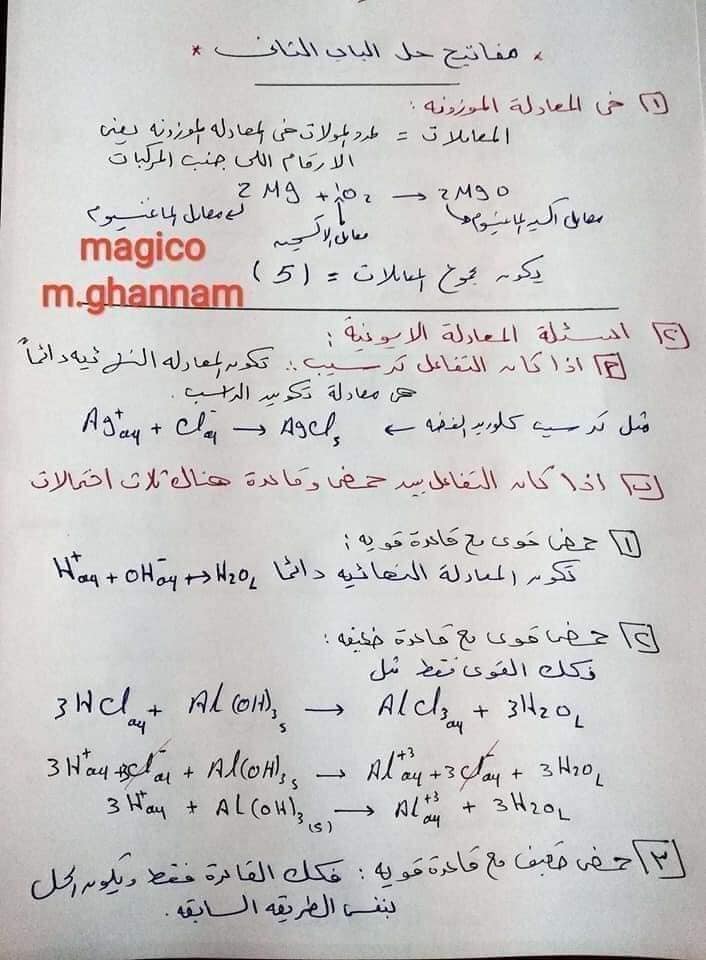 * مفاتيح حل الباب الثانى *
١ فى المعادلة الموزونه :
المعاملات = عدد المولات فى المعادله الموزونه يعنى
الارقام اللى جنب المركبات
2Mg + 1O2 → 2MgO
معامل الماغنسيوم معامل الاكسجين معامل اكسيد الماغنسيوم
يكون مجموع المعاملات = (5)
magico
m.ghannam
٢ اسئلة المعادلة الايونية :
أ اذا كان التفاعل ترسيب :. تكون المعادله النهائيه دائماً
هى معادلة تكوين الراسب .
مثل ترسيب كلوريد الفضه ← Ag+aq + Cl-aq → AgCls
ب اذا كان التفاعل بين حمض وقاعدة هناك ثلاث احتمالات
١ حمض قوى مع قاعدة قويه :
تكون المعادلة النهائيه دائما H+aq + OH-aq → H2OL
٢ حمض قوى مع قاعدة ضعيفه :
فكك القوى فقط مثل
3HClaq + Al(OH)3s → AlCl3aq + 3H2OL
3H+aq + 3Cl-aq + Al(OH)3s → Al+3aq + 3Cl-aq + 3H2OL
3H+aq + Al(OH)3(s) → Al+3aq + 3H2OL
٣ حمض ضعيف مع قاعدة قويه : فكك القاعدة فقط ويكون الحل
بنفس الطريقه السابقه .